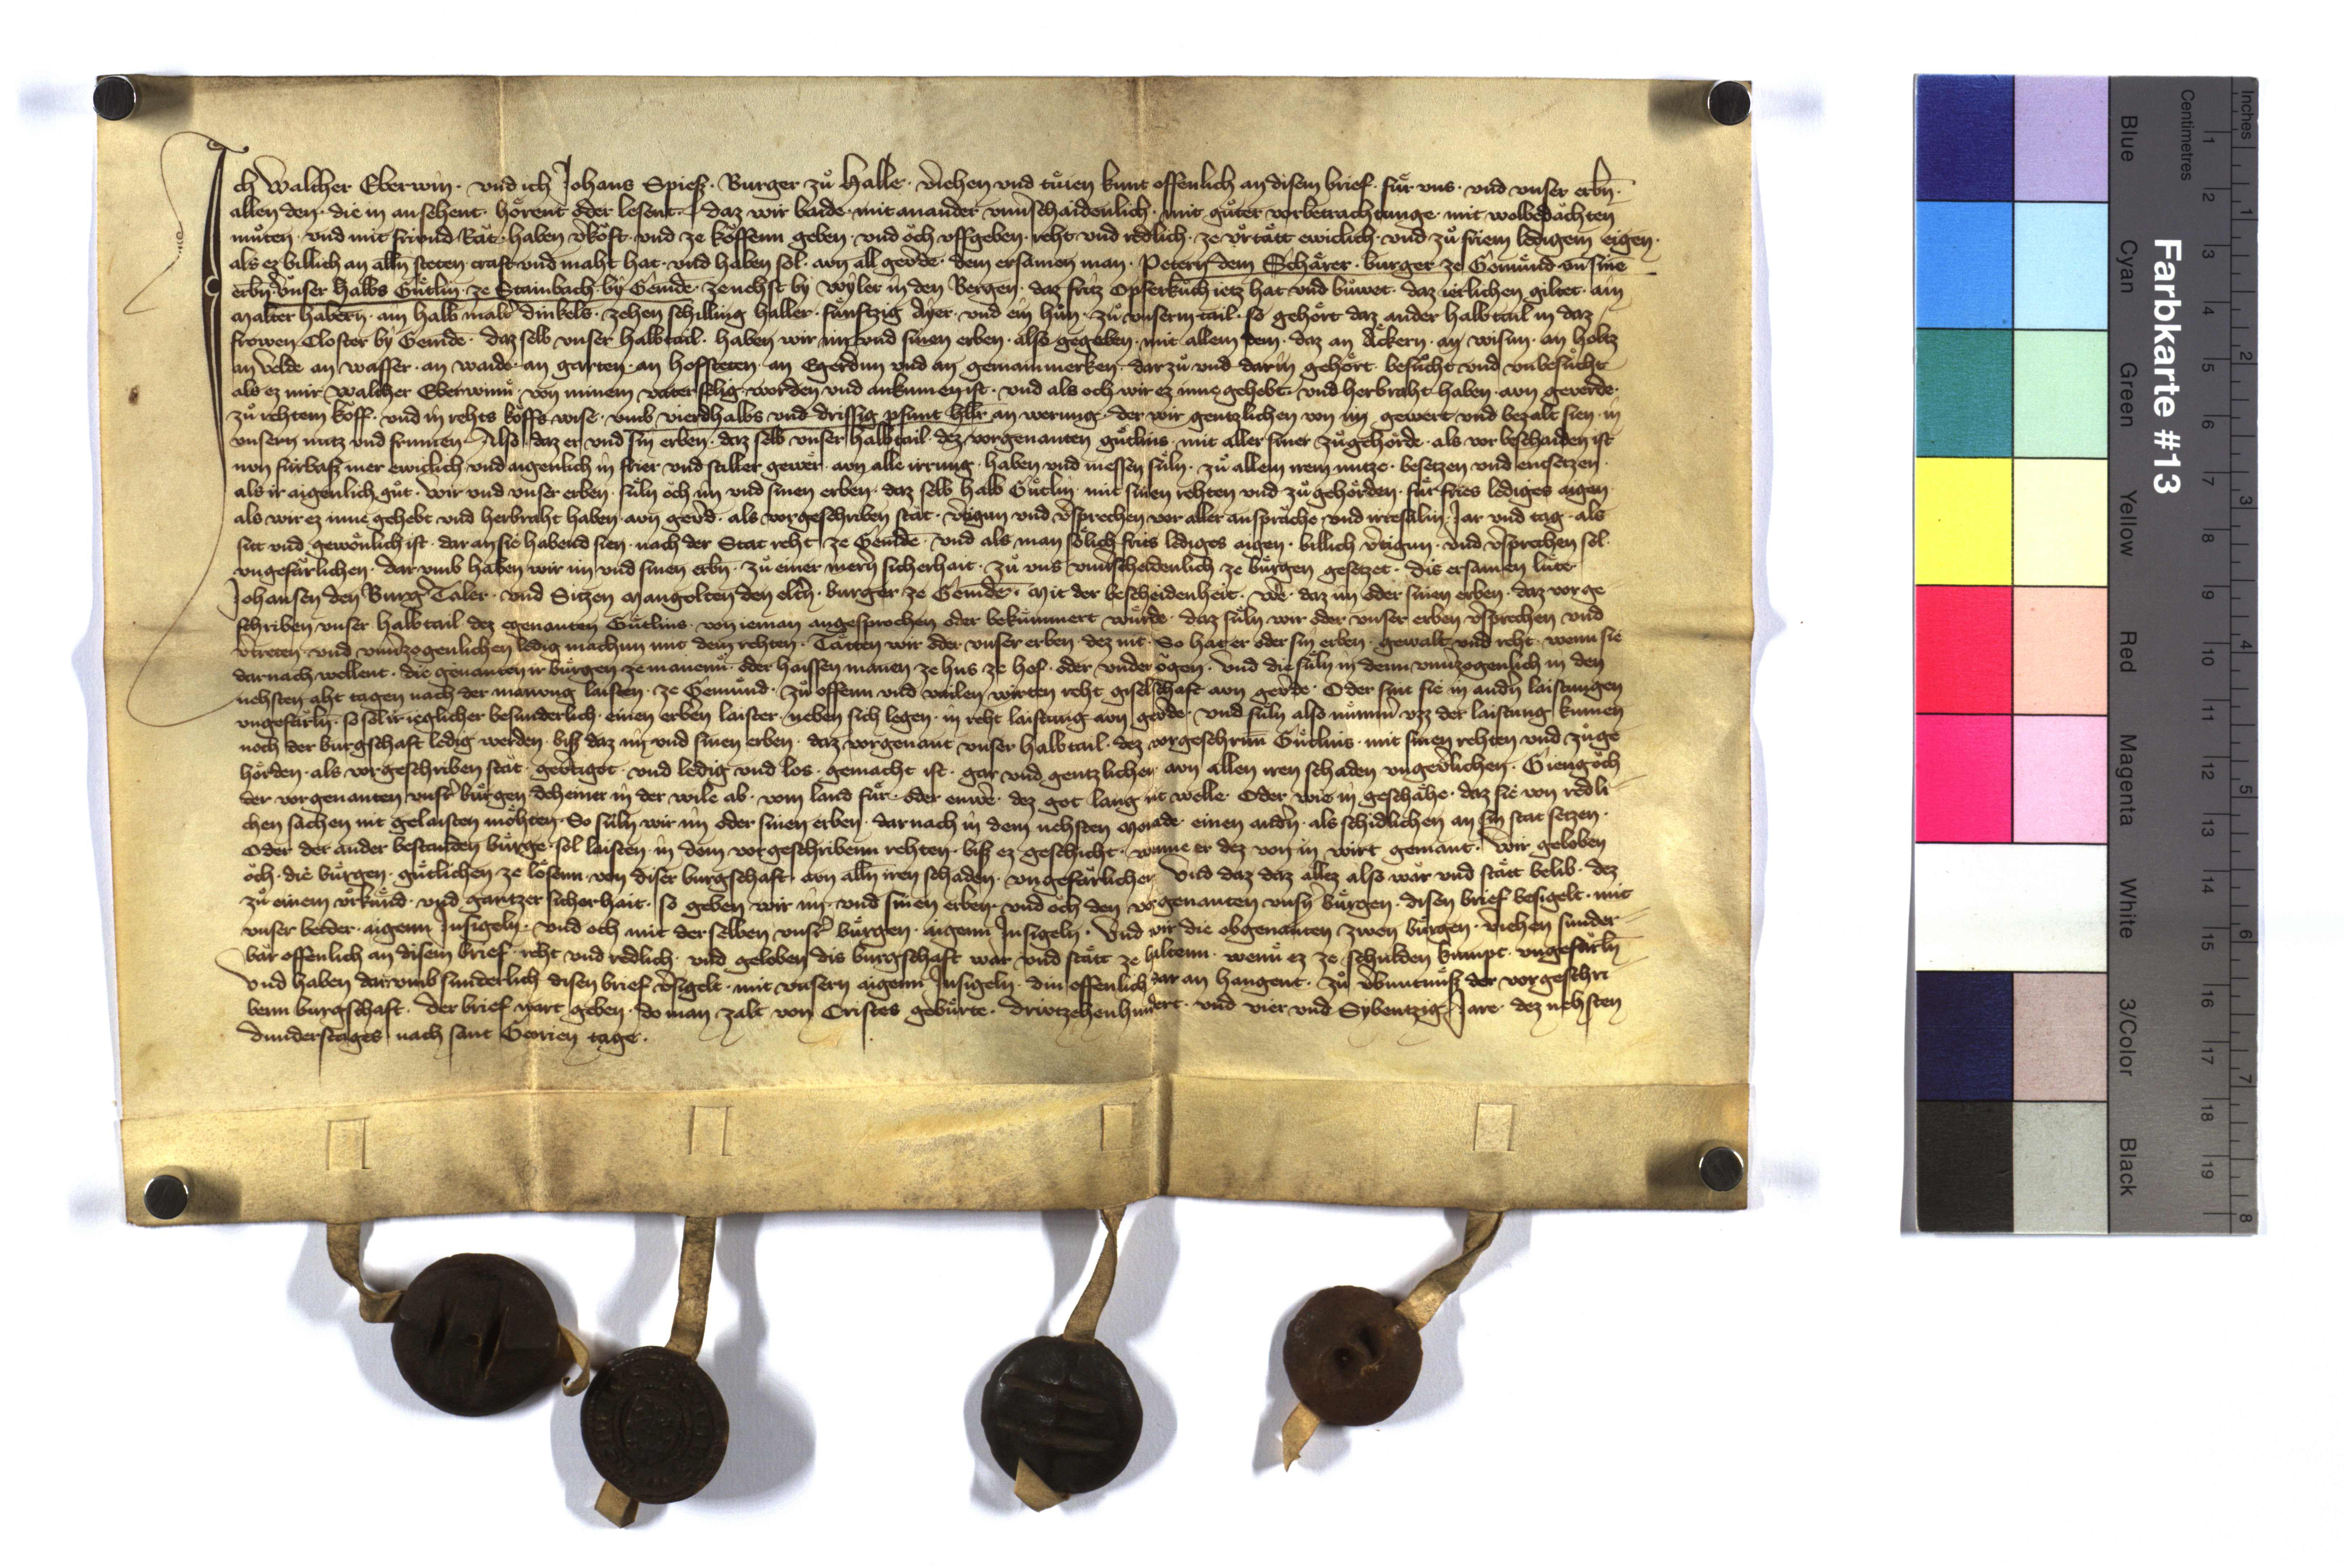 Ich Walcher Eberwin · vnd ich Johans Spieß · Burger zů Halle · v̄iehen vnd tůien kunt offenlich an disem brief · fu̇r vns · vnd vnser erbn̄ ·
allen den · die in ansehent · ho̊rent oder lesent · daz wir baide · mit anander vnu̾schaidenlich · mit gůter vorbetrachtunge · mit wolbedachten
můten · vnd mit friund Rät · haben v̾ko̊ft · vnd ze ko̊ffenn geben · vnd o̊ch vffgeben · reht · vnd redlich · ze vrtätt ewiclich · vnd zů friem ledigem eigen ·
als ez billich an alln̄ steten craft vnd maht hat · vnd haben sol · aun all gev̾de · dem ersamen man · Petern dem Schärer · burger ze Gemu̇nd · vn̄ sine
erbn̄ · vnser halbs Gu̇tlin · ze Stainbach by Gem̄de · ze nehst by Wyler in den Bergen · daz fritz Opferkůch ietz hat vnd buwet · daz ierlichen giltet · ain
malter habern · ain halb malt̾ dinkels · zehen schilling haller · fu̇nftzig Ayer · vnd ein hůn · zů vnserm tail · so geho̊rt daz ander halbtail in daz
frowen Closter by Gem̄de · daz selb vnser halbtail · haben wir im vnd sinen erben · also gegeben · mit allem dem · daz an Äckern · an wisun · an holtz
an velde an wasser · an waide · an garten · an hofsteten · an Egerdun vnd an gemainmerken · dar zů vnd darin geho̊rt · besůcht vnd vnbesůcht
als ez mir Walcher Eberwinn · von minem vater selig · worden vnd ankumen ist · vnd als och wir ez inne gehebt · vnd herbraht haben · aun geverde ·
zů rehtem ko̊ff · vnd in rehts ko̊ffs wise · vmb vierdhalbs vnd drissig pfunt hllr̄ an werung · der wir gentzlichen von im gewert vnd bezalt sien · in
vnsern nutz vnd frumen · Also daz er vnd sin erben · daz selb vnser halbtail · dez vorgenanten gu̇tlins · mit aller siner zůgeho̊rde · als vor beschaiden ist
nun fu̇rbaß mer ewiclich vnd aigenlich in frier vnd stiller gewer · aun alle irrung · haben vnd niessen su̇ln · zů allem irem nutze · besetzen vnd entsetzen ·
als ir aigenlich gůt · Wir vnd vnser erben · su̇ln o̊ch im vnd sinen erben · daz selb halb Gu̇tlin · mit sinen rehten vnd zůgeho̊rden · fu̇r fries lediges aigen ·
als wir ez inne gehebt vnd herbraht haben · aun gev̾d · als vorgeschriben stät · v̾tigun vnd v̾sprechen vor aller anspräche vnd irresalin · Jar vnd tag · als
sitt vnd gewonlich ist · dar an sie habend sien · nach der Stat reht ze Gem̄de · vnd als man so̊lich fries lediges aigen · billich v̾tigun · vnd v̾sprechen sol ·
vngefarlichen · dar vmb haben wir im vnd sinen erbn̄ · zů einer mern̄ sicherhait · zů vns vnu̾scheidenlich ze bu̇rgen gesetzet · dis ersamen lu̇te
Johansen den Burg̾ Taler · vnd Sitzen Mangolten den eltn̄ · burger ze Gem̄de · Mit der bescheidenheit · We̊ · daz im oder sinen erben · daz vorge=
schriben vnser halbtail dez egenanten Gu̇tlins · von ieman angesprochen oder beku̇mmert wu̇rde · daz su̇ln wir oder vnser erben v̾sprechen vnd
v̾treten · vnd vnu̾zogenlichen ledig machun mit dem rehten · Täten wir oder vnser erben · dez nit · So hat er oder sin erben · gewalt vnd reht · wenn sie
darnach wellent · die genanten ir bu̇rgen ze manenn · oder haissen manen ze hus ze hof · oder vnder ogen · Vnd die su̇ln in denn vnu̾zogenlich in den
nehsten aht tagen nach der manung laisten · ze Gemu̇nd · zů offenn vnd vailen wirten reht giselschaft aun gev̾de · Oder sint sie in andn̄ laistungen
vngefarln̄ · so sol ir ieglicher besunderlich · einen erben laister · neben sich legen · in reht laistung aun gev̾de · vnd su̇ln also nu̇mm̾ vzz der laistung kumen
noch der burgschaft ledig werden · biß daz im vnd sinen erben · daz vorgenant vnser halbtail · dez vorgeschribn̄ Gu̇tlins · mit sinen rehten vnd zůge
ho̊rden · als vorgeschriben stät · gev̾tigot · vnd ledig vnd los · gemacht ist · gar vnd gentzlichen aun allen iren schaden vngev̾lichen · Gieng och
der vorgenanten vnsr̾ bu̇rgen deheiner in der wile ab · vom land fu̇r · oder enwe̊ · dez got lang nit welle · Oder wie in geschähe · daz sie von redli=
chen sachen nit gelaisten mo̊hten · So su̇ln wir im oder sinen erben · darnach in dem nehsten Monade · einen andn̄ · als schidlichen an sin stat setzen ·
Oder der ander bestanden bu̇rge · sol laisten in dem vorgeschribenn rehten · biß ez geschicht · wanne er dez von in wirt gemant · Wir geloben
o̊ch · die bu̇rgen · gu̇tlichen ze lo̊senn · von diser burgschaft · aun alln̄ iren schaden · vngefarlichen Vnd daz daz alles also war vnd stätt belib · dez
zů einem vrku̇nd · vnd gantzer sicherhait · so geben wir im · vnd sinen erben · vnd och den vorgenanten vnsn̄ bu̇rgen · disen brief besigelt · mit
vnser beider · aigenn Insigeln · vnd och mit der selben vnsr̾ bu̇rgen · aigenn Insigeln · Vnd wir die obgenanten zwen bu̇rgen · v̄iehen sunder=
bär offenlich an disem brief · reht vnd redlich · vnd geloben dis burgschaft war vnd stätt ze haltenn · wenn ez ze schulden kumpt · vngefarln̄
Vnd haben darvmb sunderlich disen brief v̾sigelt · mit vnsern aigenn Insigeln · diu offenlich dar an hangent · zů v̾buntnu̇ß der vorgeschri
benn burgschaft · Der brief wart geben · do man zalt von Cristes gebu̇rte · driutzehenhundert · vnd vier vnd Sybentzig Jare · dez nehsten
dunderstages nach sant Georien tage ·
Farbkarte #13
Blue Cyan Green Yellow Red Magenta White 3/Color Black
Centimetres 1 2 3 4 5 6 7 8 9 10 11 12 13 14 15 16 17 18 19
Inches 1 2 3 4 5 6 7 8